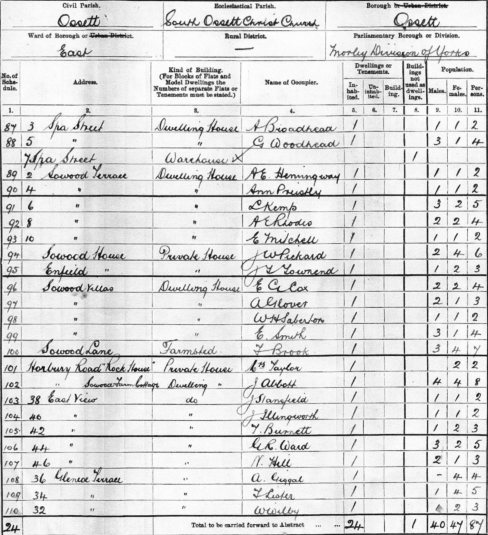 Civil Parish. Ecclesiastical Parish. Borough or Urban District.
Ossett South Ossett Christ Church Ossett
Ward of Borough or Urban District. Rural District. Parliamentary Borough or Division.
East — Morley Division of Yorks
No. of Schedule. Address. Kind of Building. (For Blocks of Flats and Model Dwellings the Numbers of separate Flats or Tenements must be stated.) Name of Occupier. Dwellings or Tenements. Inhabited. Uninhabited. Building. Buildings not used as dwellings. Population. Males. Females. Persons.
1. 2. 3. 4. 5. 6. 7. 8. 9. 10. 11.
87 3 Spa Street Dwelling House A Broadhead 1 1 1 2
88 5 " " G Woodhead 1 3 1 4
7 Spa Street Warehouse × 1
89 2 Sowood Terrace Dwelling House A E Hemingway 1 1 1 2
90 4 " " Ann Priestly 1 1 1 2
91 6 " " L Kemp 1 3 2 5
92 8 " " A E Rhodes 1 2 2 4
93 10 " " E Mitchell 1 1 1 2
94 Sowood House Private House J W Pickard 1 2 4 6
95 Enfield " " J L Townend 1 1 2 3
96 Sowood Villas Dwelling House E C Cox 1 2 2 4
97 " " A Glover 1 2 1 3
98 " " W H Saberton 1 1 1 2
99 " " E Smith 1 3 1 4
100 Sowood Lane Farmsted F Brook 1 3 4 7
101 Horbury Road "Rock House" Private House Taylor 1 2 2
102 " Sowood Farm Cottage Dwelling " J Abbott 1 4 4 8
103 38 East View do J Stansfield 1 1 1 2
104 40 " " J Illingworth 1 1 1 2
105 42 " " T. Burnett 1 1 2 3
106 44 " " G R Ward 1 3 2 5
107 46 " " N. Hill 1 2 1 3
108 36 Terrace " A. 1 - 4 4
109 34 " " Lister 1 1 4 5
110 32 " " W Wilby 1 2 3
24 Total to be carried forward to Abstract ... ... 24 1 40 47 87